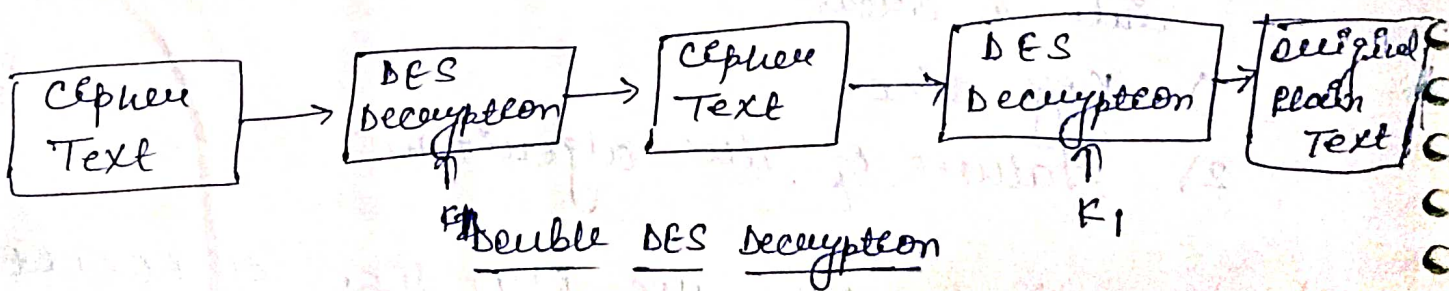 Cipher
Text
DES
Decryption
Cipher
Text
DES
Decryption
Original
Plain
Text
K1
Double DES Decryption